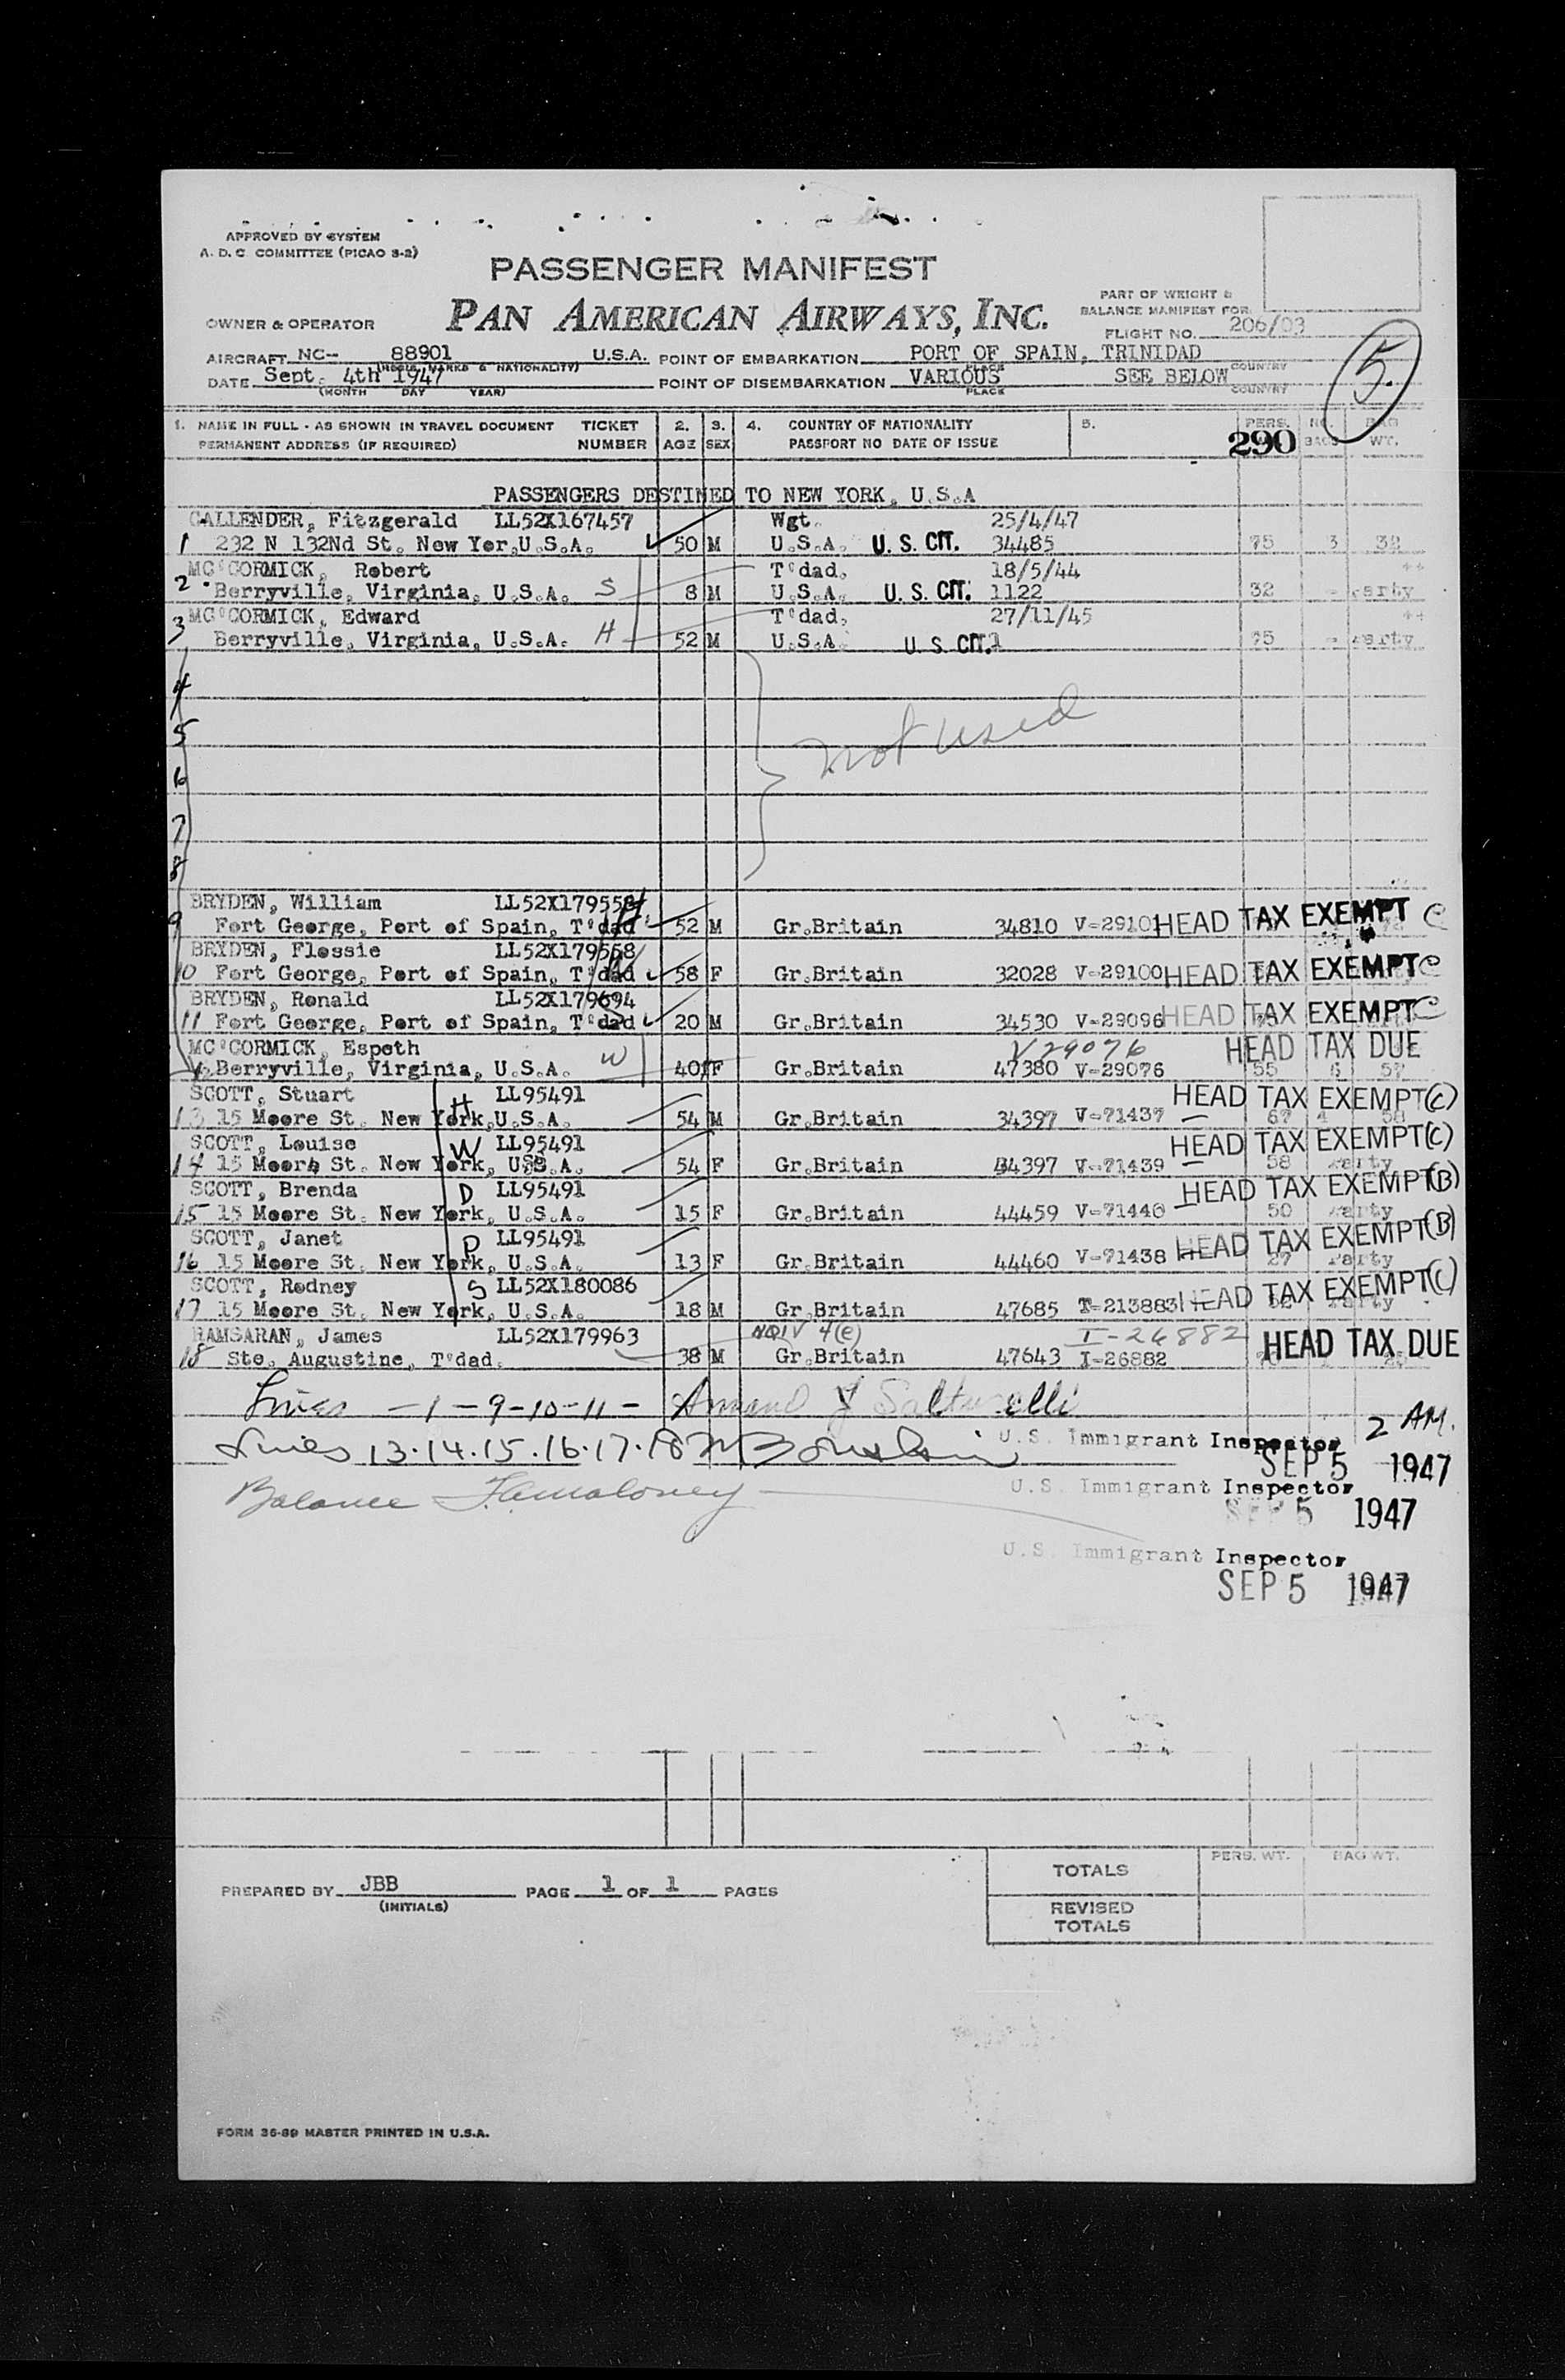 APPROVED BY SYSTEM
A. D. C. COMMITTEE (PICAO S-2)
PASSENGER MANIFEST
PAN AMERICAN AIRWAYS, INC.
PART OF WEIGHT &
BALANCE MANIFEST FOR
OWNER & OPERATOR
FLIGHT NO. 206/03
AIRCRAFT NC-- 88901 U.S.A. POINT OF EMBARKATION PORT OF SPAIN, TRINIDAD
(REGIS. MARKS & NATIONALITY) PLACE COUNTRY
DATE Sept. 4th 1947 POINT OF DISEMBARKATION VARIOUS SEE BELOW
(MONTH DAY YEAR) PLACE COUNTRY
5.
1. NAME IN FULL - AS SHOWN IN TRAVEL DOCUMENT TICKET 2. 3. 4. COUNTRY OF NATIONALITY 5. PERS. NO. BAG
PERMANENT ADDRESS (IF REQUIRED) NUMBER AGE SEX PASSPORT NO DATE OF ISSUE 290 BAGS WT.
PASSENGERS DESTINED TO NEW YORK, U.S.A
CALLENDER, Fitzgerald LL52X167457 Wgt. 25/4/47
1 232 N 132Nd St. New Yor,U.S.A. 50 M U.S.A. U. S. CIT. 34485 75 3 32
MC'CORMICK, Robert T'dad. 18/5/44 ++
2 Berryville, Virginia, U.S.A. S 8 M U.S.A. U. S. CIT. 1122 32 - Party
MC'CORMICK, Edward T'dad, 27/11/45 ++
3 Berryville, Virginia, U.S.A. H 52 M U.S.A. U. S. CIT. 1 75 - Party
4
5 not used
6
7
8
BRYDEN, William LL52X179558
9 Fort George, Port of Spain, T'dad H 52 M Gr.Britain 34810 V-29101 HEAD TAX EXEMPT C
BRYDEN, Flossie LL52X179568
10 Fort George, Port of Spain, T'dad W 58 F Gr.Britain 32028 V-29100 HEAD TAX EXEMPT C
BRYDEN, Ronald LL52X179694
11 Fort George, Port of Spain, T'dad S 20 M Gr.Britain 34530 V-29096 HEAD TAX EXEMPT C
MC'CORMICK, Espeth V29076 HEAD TAX DUE
12 Berryville, Virginia, U.S.A. W 40 F Gr.Britain 47380 V-29076 55 6 57
SCOTT, Stuart H LL95491 HEAD TAX EXEMPT(C)
13 15 Moore St. New York,U.S.A. 54 M Gr.Britain 34397 V-71437 67 4 58
SCOTT, Louise W LL95491 HEAD TAX EXEMPT(C)
14 15 Moore St. New York, U.S.A. 54 F Gr.Britain 34397 V-71439 58 Party
SCOTT, Brenda D LL95491 HEAD TAX EXEMPT(B)
15 15 Moore St. New York, U.S.A. 15 F Gr.Britain 44459 V-71440 50 Party
SCOTT, Janet D LL95491 HEAD TAX EXEMPT(B)
16 15 Moore St. New York, U.S.A. 13 F Gr.Britain 44460 V-71438 27 Party
SCOTT, Rodney S LL52X180086 HEAD TAX EXEMPT(C)
17 15 Moore St. New York, U.S.A. 18 M Gr.Britain 47685 T-213883 Party
RAMSARAN, James LL52X179963 NQIV 4(e) I-26882 HEAD TAX DUE
18 Ste. Augustine, T'dad. 38 M Gr.Britain 47643 I-26882
Lines -1-9-10-11- Armand J
U.S. Immigrant Inspector 2 AM.
Lines 13.14.15.16.17.18 SEP 5 1947
Balance U.S. Immigrant Inspector
SEP 5 1947
U.S. Immigrant Inspector
SEP 5 1947
PERS. WT. BAG WT.
TOTALS
PREPARED BY JBB PAGE 1 OF 1 PAGES
(INITIALS)
REVISED
TOTALS
FORM 36-89 MASTER PRINTED IN U.S.A.